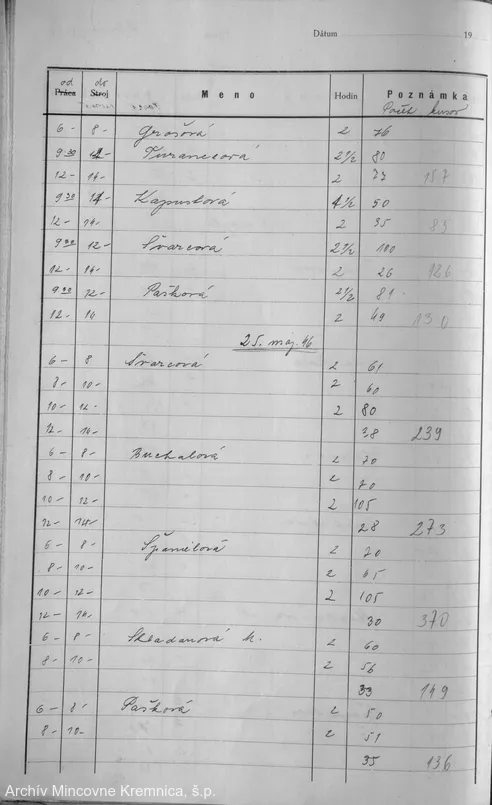 Dátum 19
od do
Práca Stroj Meno Hodín Poznámka
Počet kusov
6- 8- Grošová 2 76
9 30 12- Turancová 2 1/2 80
12- 14- 2 77 157
9 30 14- Kapustová 4 1/2 50
12- 14- 2 35 85
9 30 12- Švarcová 2 1/2 100
12- 14- 2 26 126
9 30 12- Pašková 2 1/2 81-
12- 14 2 49 130
25. máj. 46
6- 8 Švarcová 2 61
8- 10- 2 60
10- 12- 2 80
12- 14- 38 239
6- 8- Buchalová 2 70
8- 10- 2 70
10- 12- 2 105
12- 14- 28 273
6- 8- Španielová 2 70
8- 10- 2 65
10- 12- 2 105
12- 14- 30 370
6- 8- Skladanová M. 2 60
8- 10- 2 56
33 149
6- 8- Pašková 2 50
8- 10- 2 51
35 136
Archív Mincovne Kremnica, š.p.